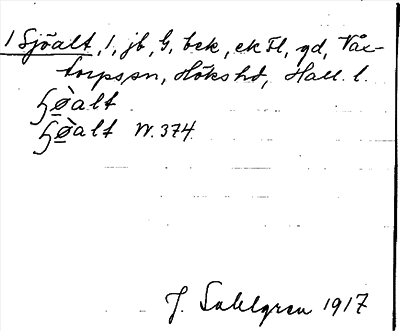 1 Sjöalt, 1, jb, G, bek, ek Fl, gd, Våx-
torps sn, Höks hd, Hall. l.
ꜧø̀alt
ꜧø̀alt W. 374
J. Sahlgren 1917